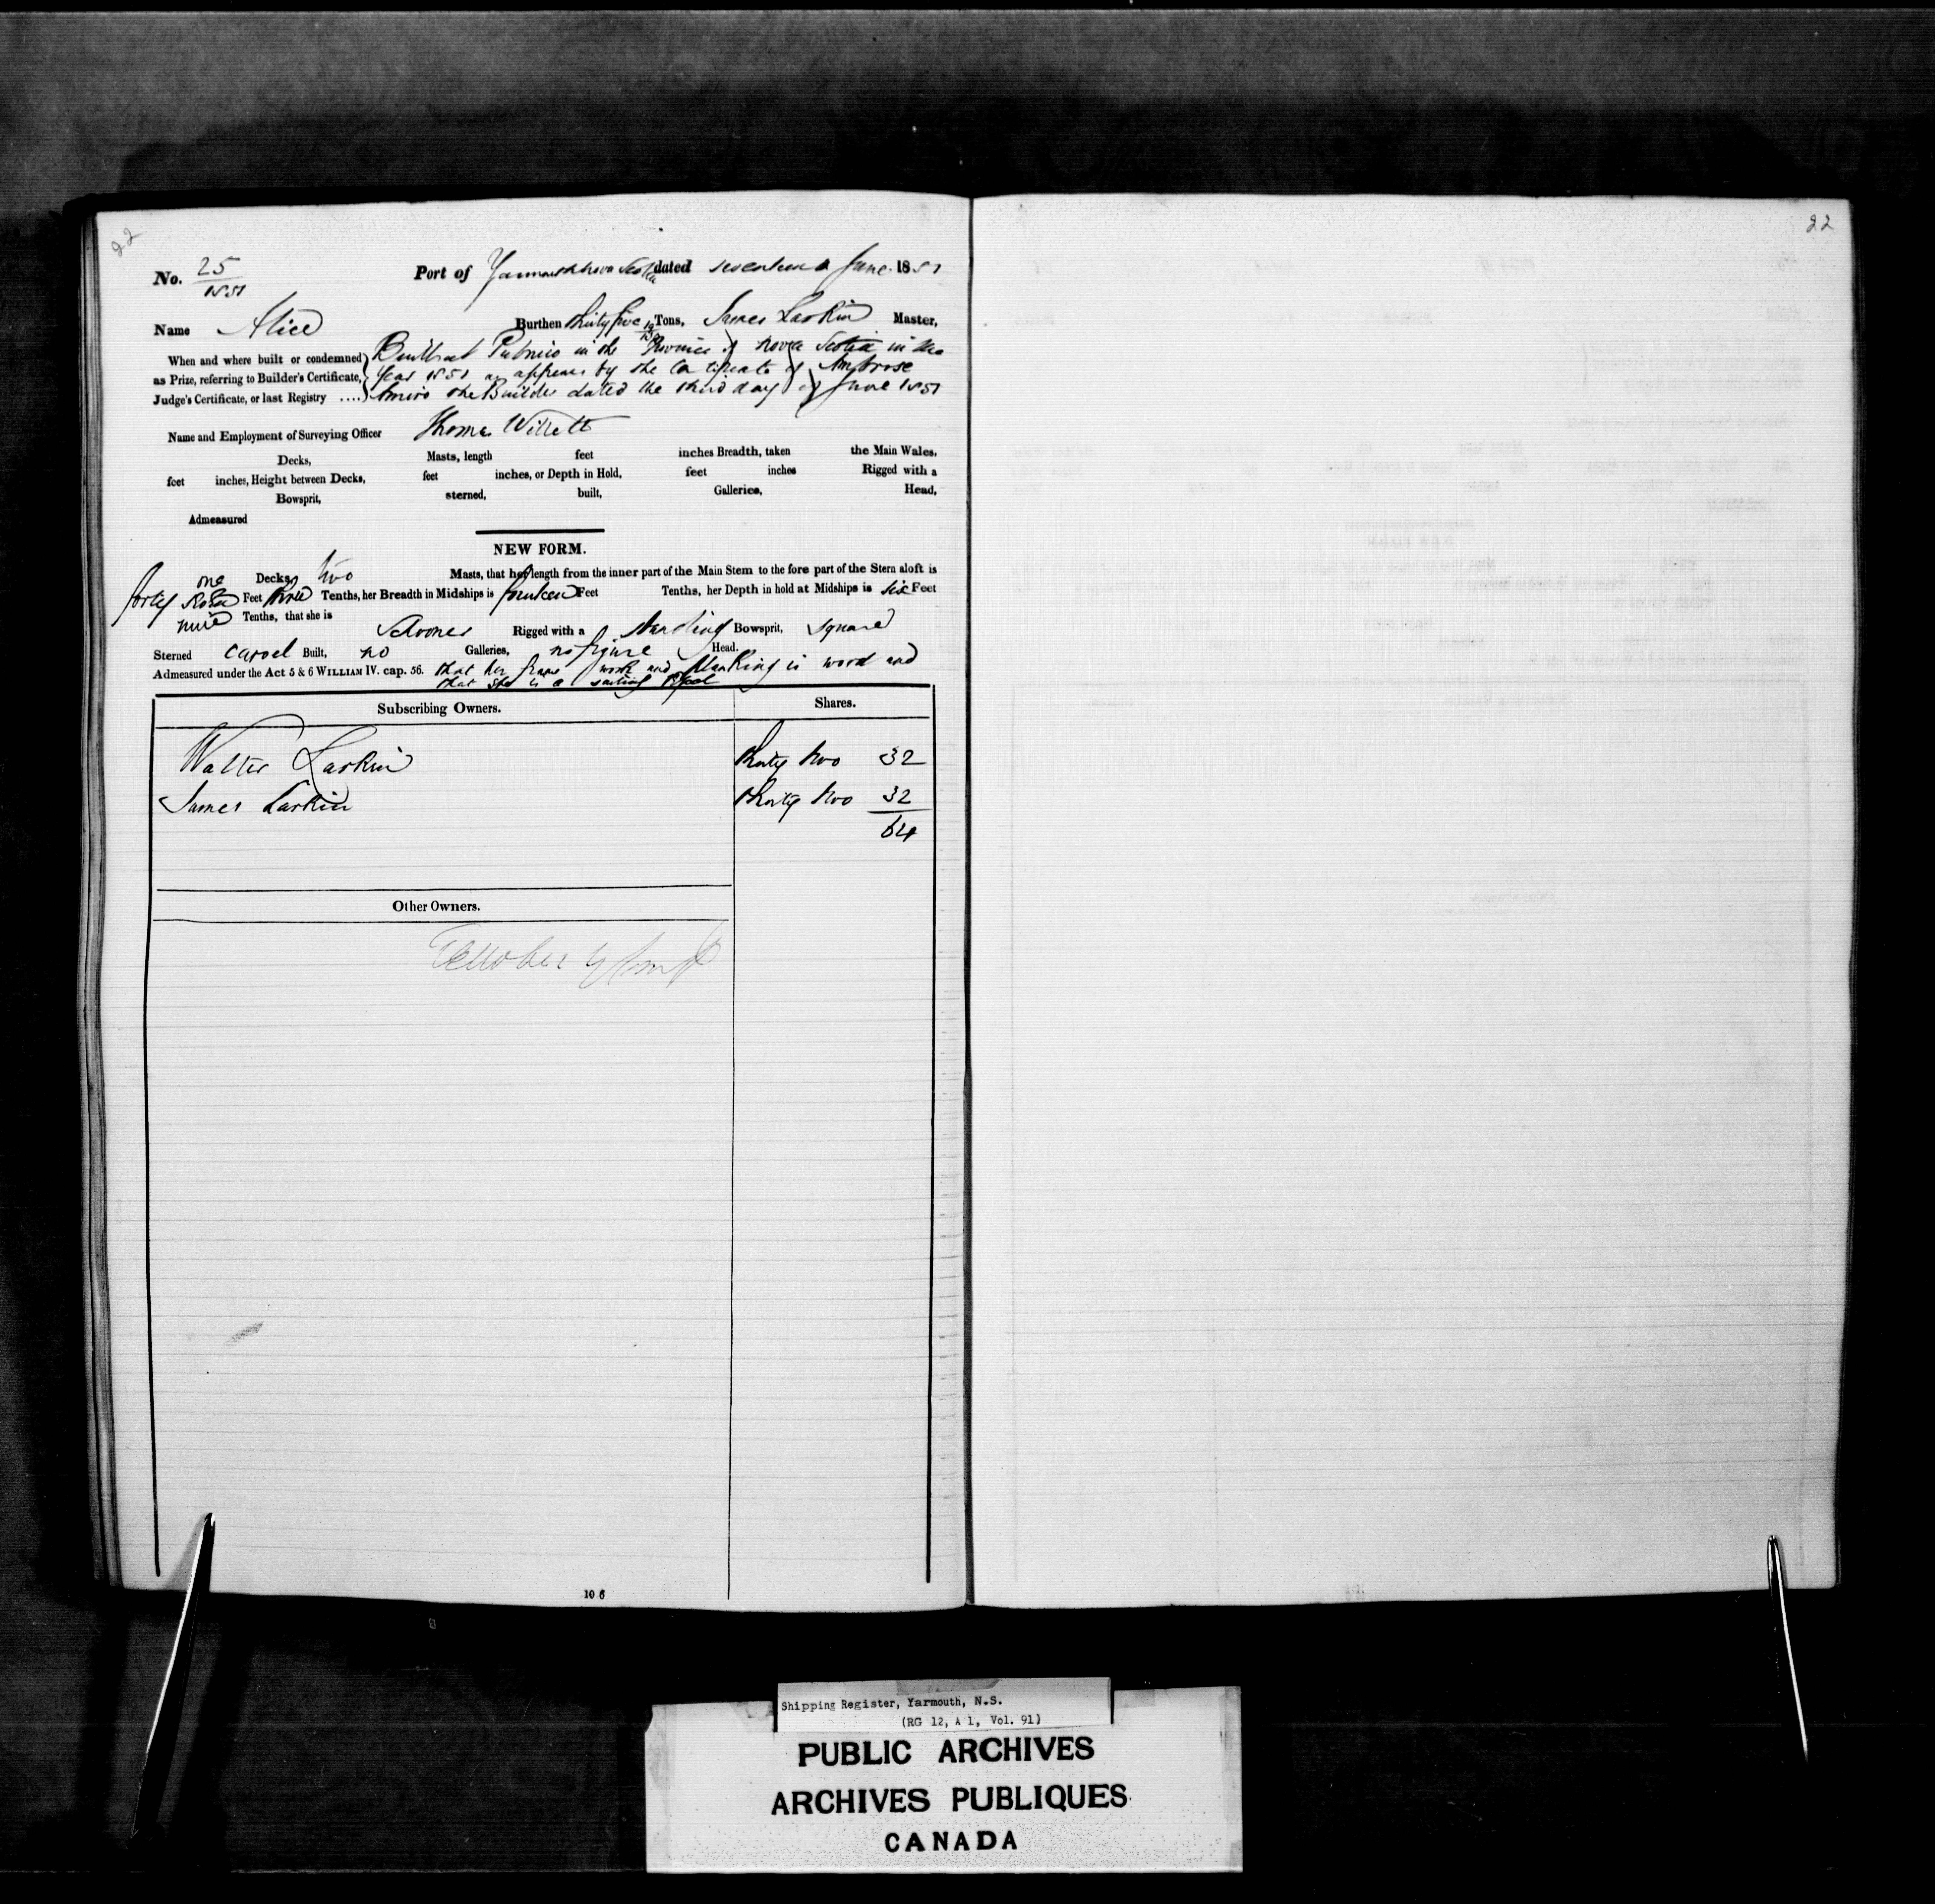 22
22
No. 25
1851
Port of Yarmouth Nova Scotia dated seventeen June 1851
Name Alice Burthen thirty five Tons, James Larkin Master,
When and where built or condemned as Prize, referring to Builder's Certificate, Judge's Certificate, or last Registry ....
Built at Pubnico in the Province of Nova Scotia in the
Year 1851 as appears by the Certificate of Ambrose
Amiro the Builder dated the third day of June 1851
Name and Employment of Surveying Officer Thomas Willett
Decks, Masts, length feet inches Breadth, taken the Main Wales,
feet inches, Height between Decks, feet inches, or Depth in Hold, feet inches Rigged with a
Bowsprit, sterned, built, Galleries, Head,
Admeasured
NEW FORM.
one Decks, two Masts, that her length from the inner part of the Main Stem to the fore part of the Stern aloft is
forty Feet three Tenths, her Breadth in Midships is fourteen Feet Tenths, her Depth in hold at Midships is six Feet
nine Tenths, that she is Schooner Rigged with a standing Bowsprit, square
Sterned carvel Built, no Galleries, no figure Head.
Admeasured under the Act 5 & 6 WILLIAM IV. cap. 56. that her frame work and planking is wood and
that she is a sailing vessel
Subscribing Owners. Shares.
Walter Larkin thirty two 32
James Larkin thirty two 32
64
Other Owners.
10 6
Shipping Register, Yarmouth, N.S.
(RG 12, A 1, Vol. 91)
PUBLIC ARCHIVES
ARCHIVES PUBLIQUES
CANADA